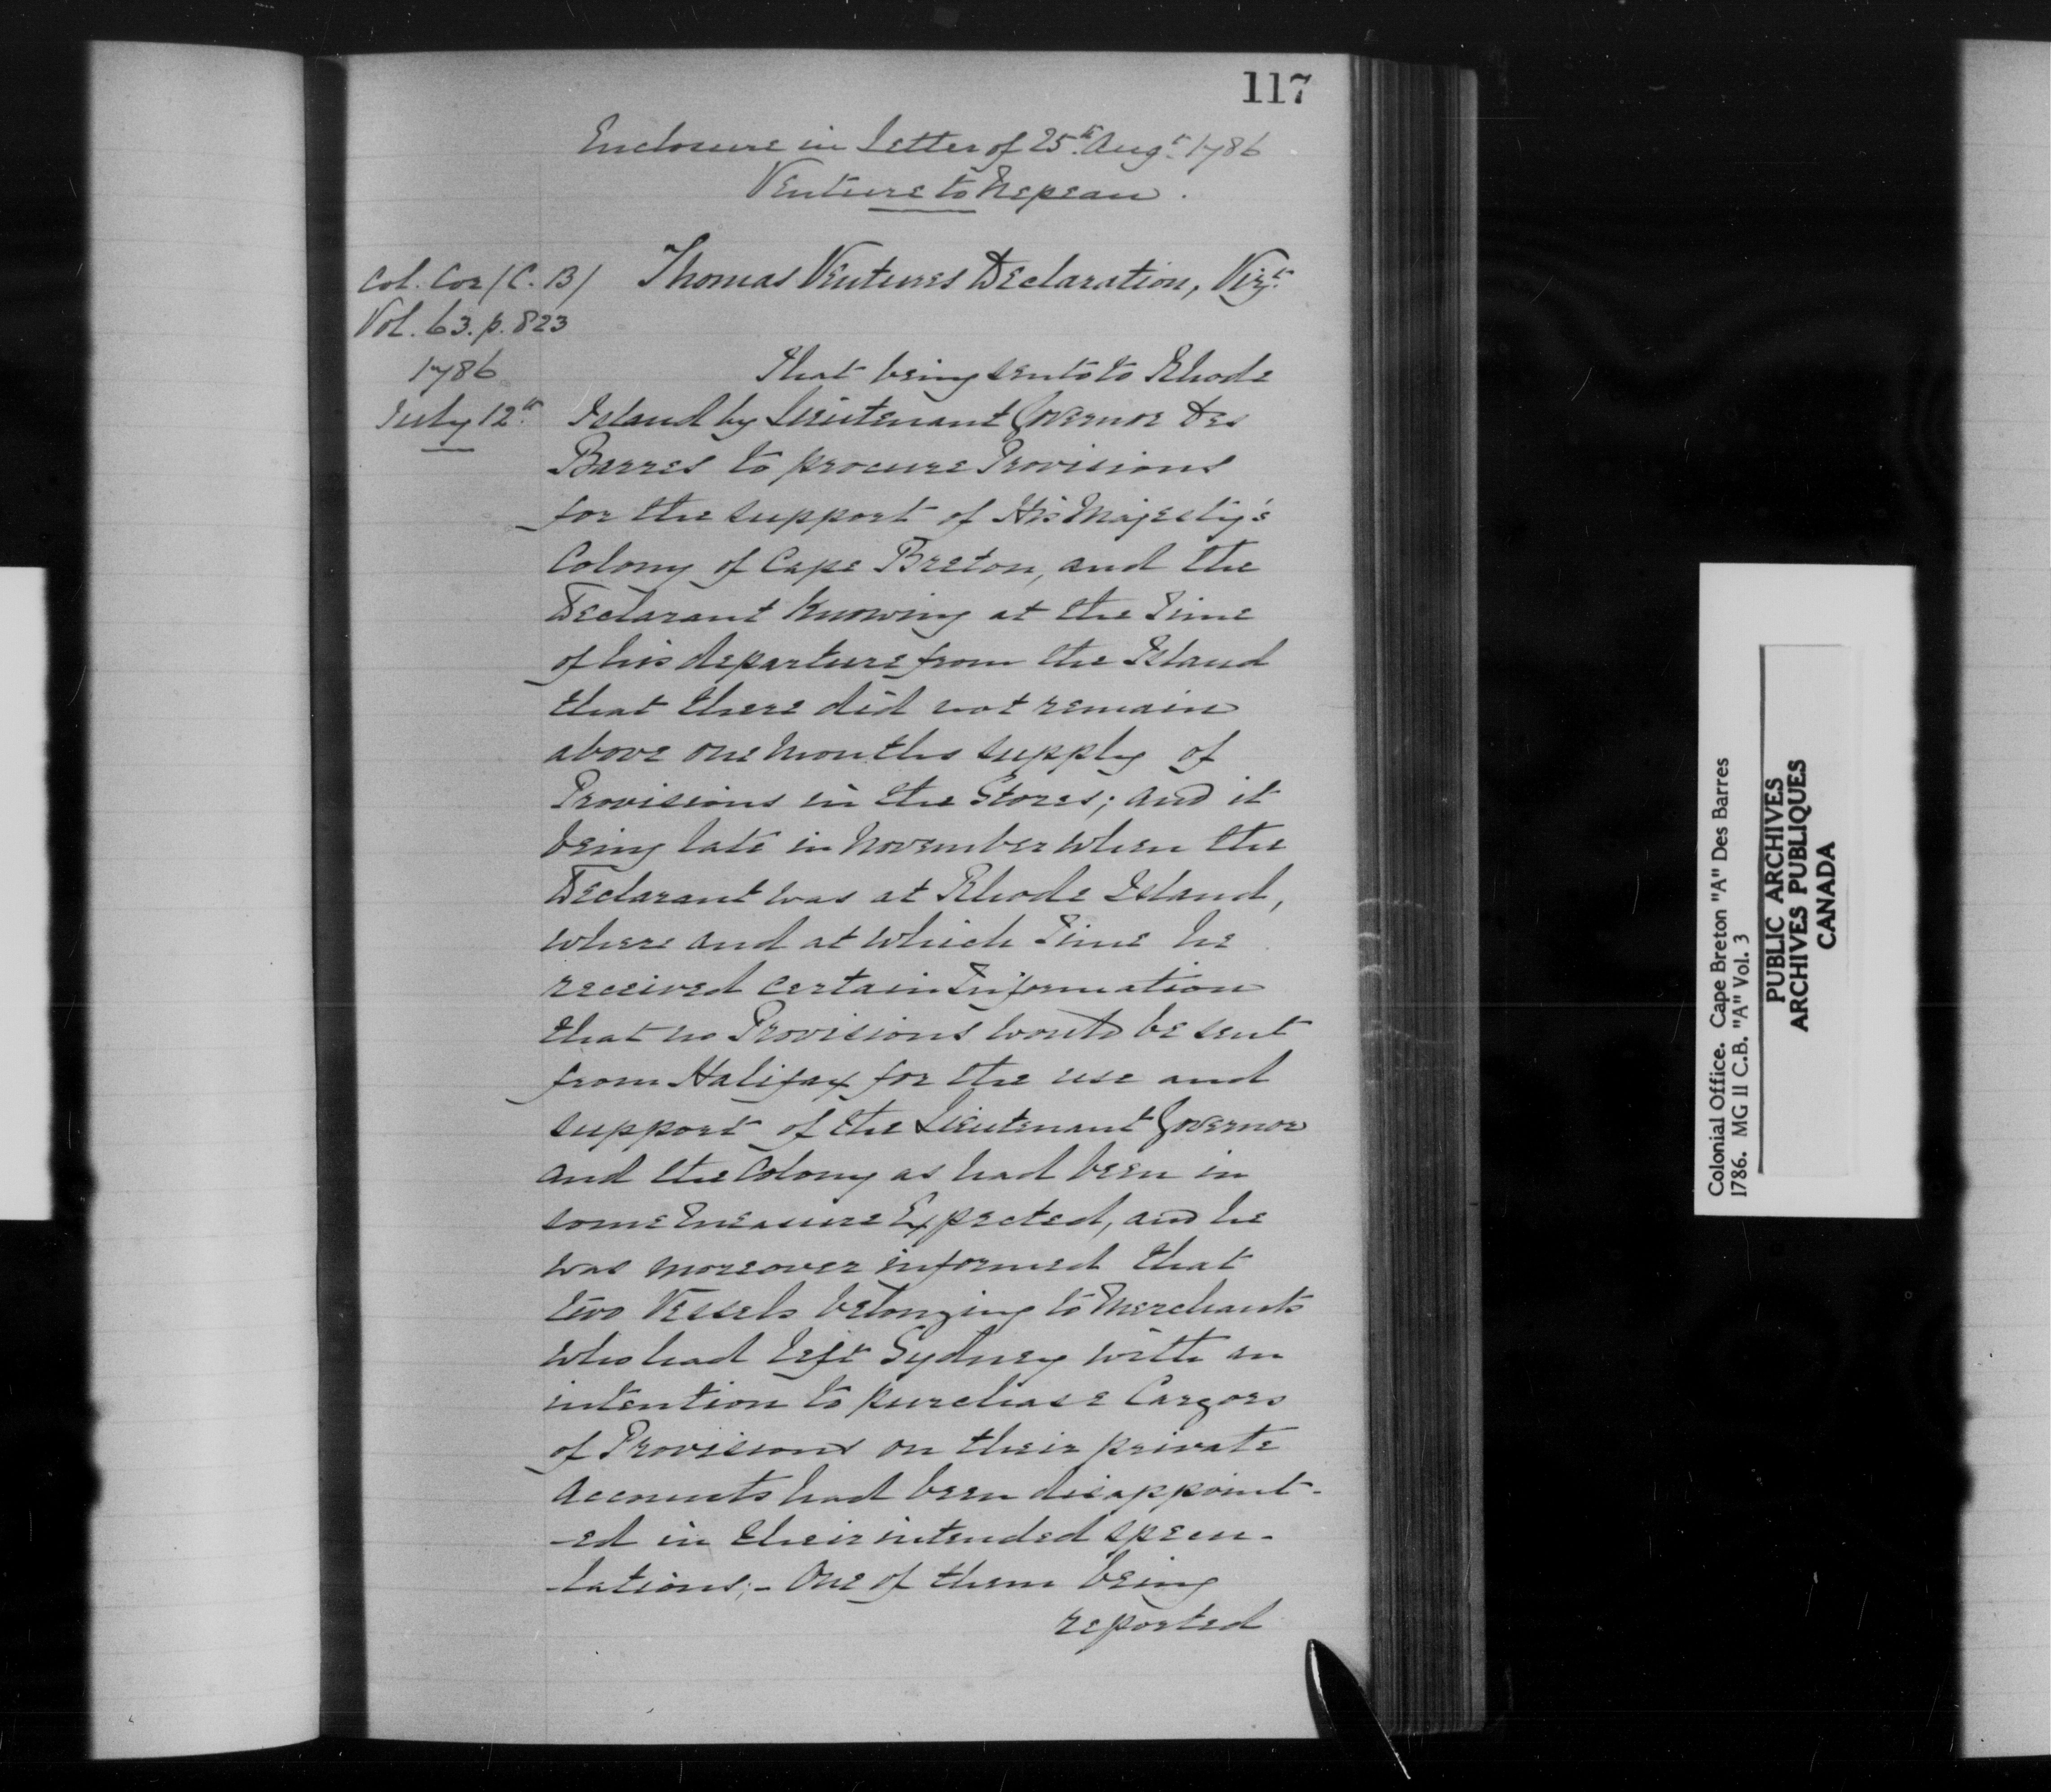 117
Enclosure in Letter of 25th Augt 1786
Venture to Nepean.
Col. Cor (C. B)
Vol. 63. p. 823
1786
July 12th
Thomas Ventures Declaration, Vizt
That being sent to Rhode
Island by Lieutenant Governor Des
Barres to procure Provisions
for the support of His Majesty's
Colony of Cape Breton, and the
Declarant knowing at the Time
of his departure from the Island
that there did not remain
above one months supply of
Provisions in the Stores; and it
being late in November when the
Declarant was at Rhode Island,
where and at which Time he
received certain Information
that no Provisions would be sent
from Halifax for the use and
support of the Lieutenant Governor
and the Colony as had been in
some measure Expected, and he
was moreover informed that
two Vessels belonging to Merchants
who had left Sydney with an
intention to purchase Cargoes
of Provisions on their private
Accounts had been disappoint-
-ed in their intended specu-
-lations; - One of them being
reported
Colonial Office. Cape Breton "A" Des Barres
1786. MG II C.B. "A" Vol. 3
PUBLIC ARCHIVES
ARCHIVES PUBLIQUES
CANADA